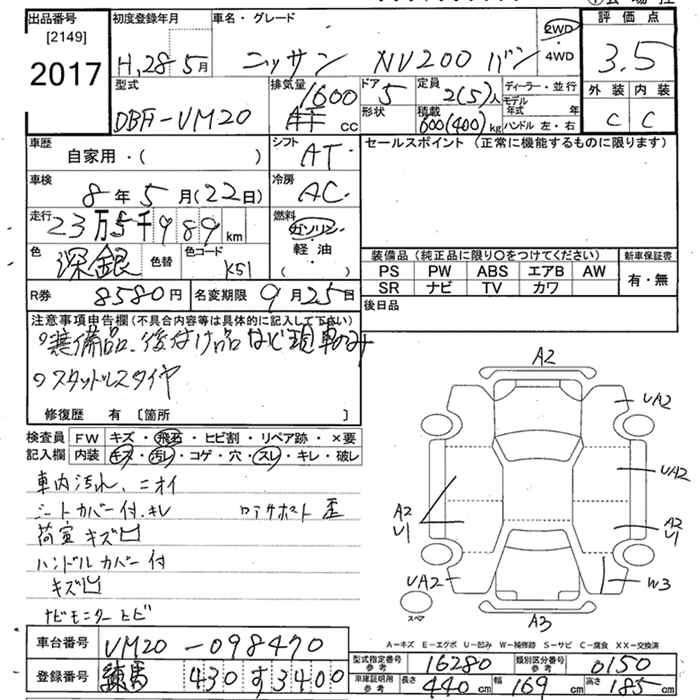 出品番号
[2149]
2017
初度登録年月
H.28 5月
車名・グレード
ニッサン NV200 バン
2WD
・
4WD
評価点
3.5
外装 内装
C C
型式
DBF-VM20
排気量
1600
cc
ドア
5
形状
定員
2(5)人
積載
600(400)kg
ディーラー・並行
モデル
年式 年
ハンドル 左・右
車歴
自家用・( )
シフト
AT
セールスポイント (正常に機能するものに限ります)
車検
8年5月(22日)
冷房
AC
走行
23万5千989km
燃料
ガソリン
軽油
( )
色
深銀
色替
色コード
K51
装備品 (純正品に限り○をつけてください)
新車保証書
PS PW ABS エアB AW
SR ナビ TV カワ
有・無
R券
8580円
名変期限
9月25日
後日品
注意事項申告欄(不具合内容等は具体的に記入して下さい)
○装備品、後付け品など現車のみ
○スタッドレスタイヤ
修復歴 有 〔箇所 〕
検査員
記入欄
FW キズ・飛石・ヒビ割・リペア跡・×要
内装 キズ・汚レ・コゲ・穴・スレ・キレ・破レ
車内汚れ、ニオイ
シートカバー付、キレ
荷室キズ凹
ハンドルカバー付
キズ凹
ナビモニタートビ
A2
UA2
UA2
A2
U1
A2
U1
UA2
W3
A3
スペア
A-キズ E-エクボ U-凹み W-補修跡 S-サビ C-腐食 XX-交換済
車台番号
VM20-098470
登録番号
練馬 430 す 3400
型式指定番号
参考
16280
類別区分番号
参考
0150
車庫証明用
参考
長さ 440cm
幅 169cm
高さ 185cm